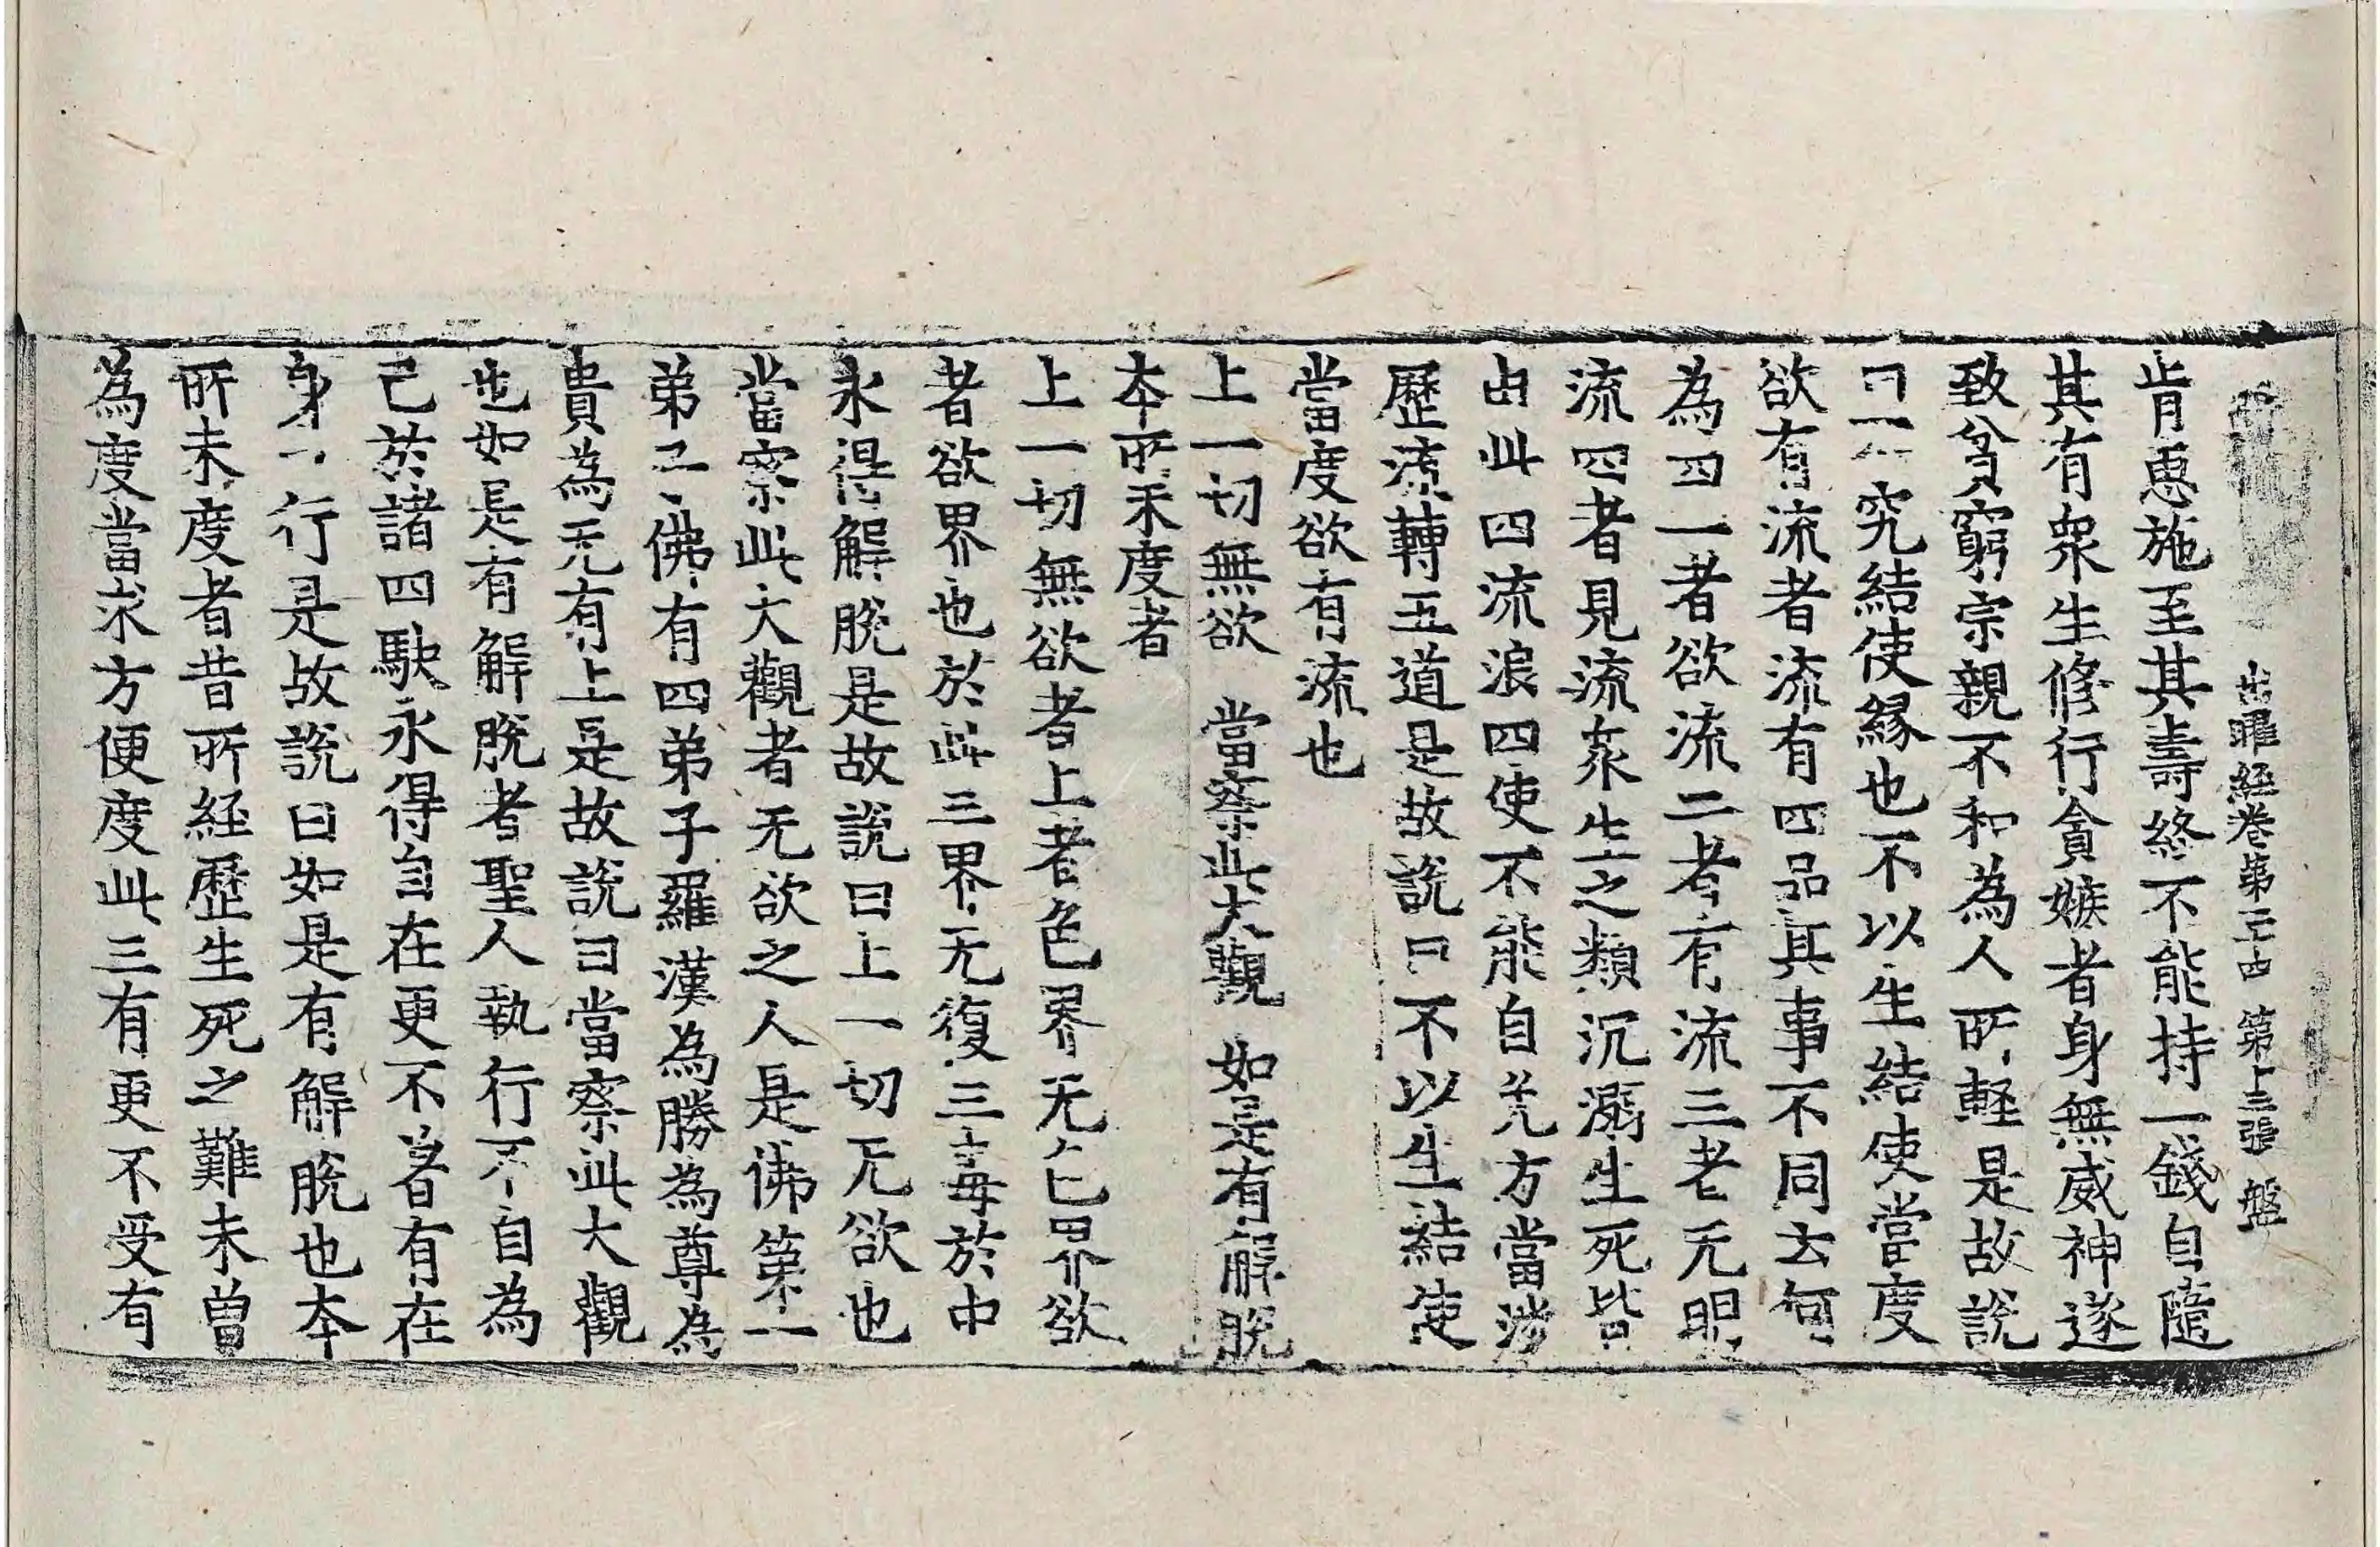 出曜經卷第二十四 第十三張 盤
肯惠施至其壽終不能持一錢自隨
其有衆生修行貪嫉者身無威神遂
致貧窮宗親不和為人所軽是故說
曰 究結使縁也不以生結使當度
欲有流者流有四品其事不同云何
為四一者欲流二者有流三者无明
流四者見流流衆生之類沉溺生死皆
由此四流浪四使不能自免方當涉
歷流轉五道是故說曰不以生結使
當度欲有流也
上一切無欲 當察此大觀 如是有解脫
本所未度者
上一切無欲者上者色界无色界欲
者欲界也於此三界无復三毒於中
永得解脫是故說曰上一切无欲也
當察此大觀者无欲之人是佛第一
弟子佛有四弟子羅漢為勝為尊為
貴為无有上是故說曰當察此大觀
也如是有解脫者聖人執行不自為
己於諸四駃永得自在更不著有在
身行是故說曰如是有解脫也本
所未度者昔所経歷生死之難未曽
為度當求方便度此三有更不受有